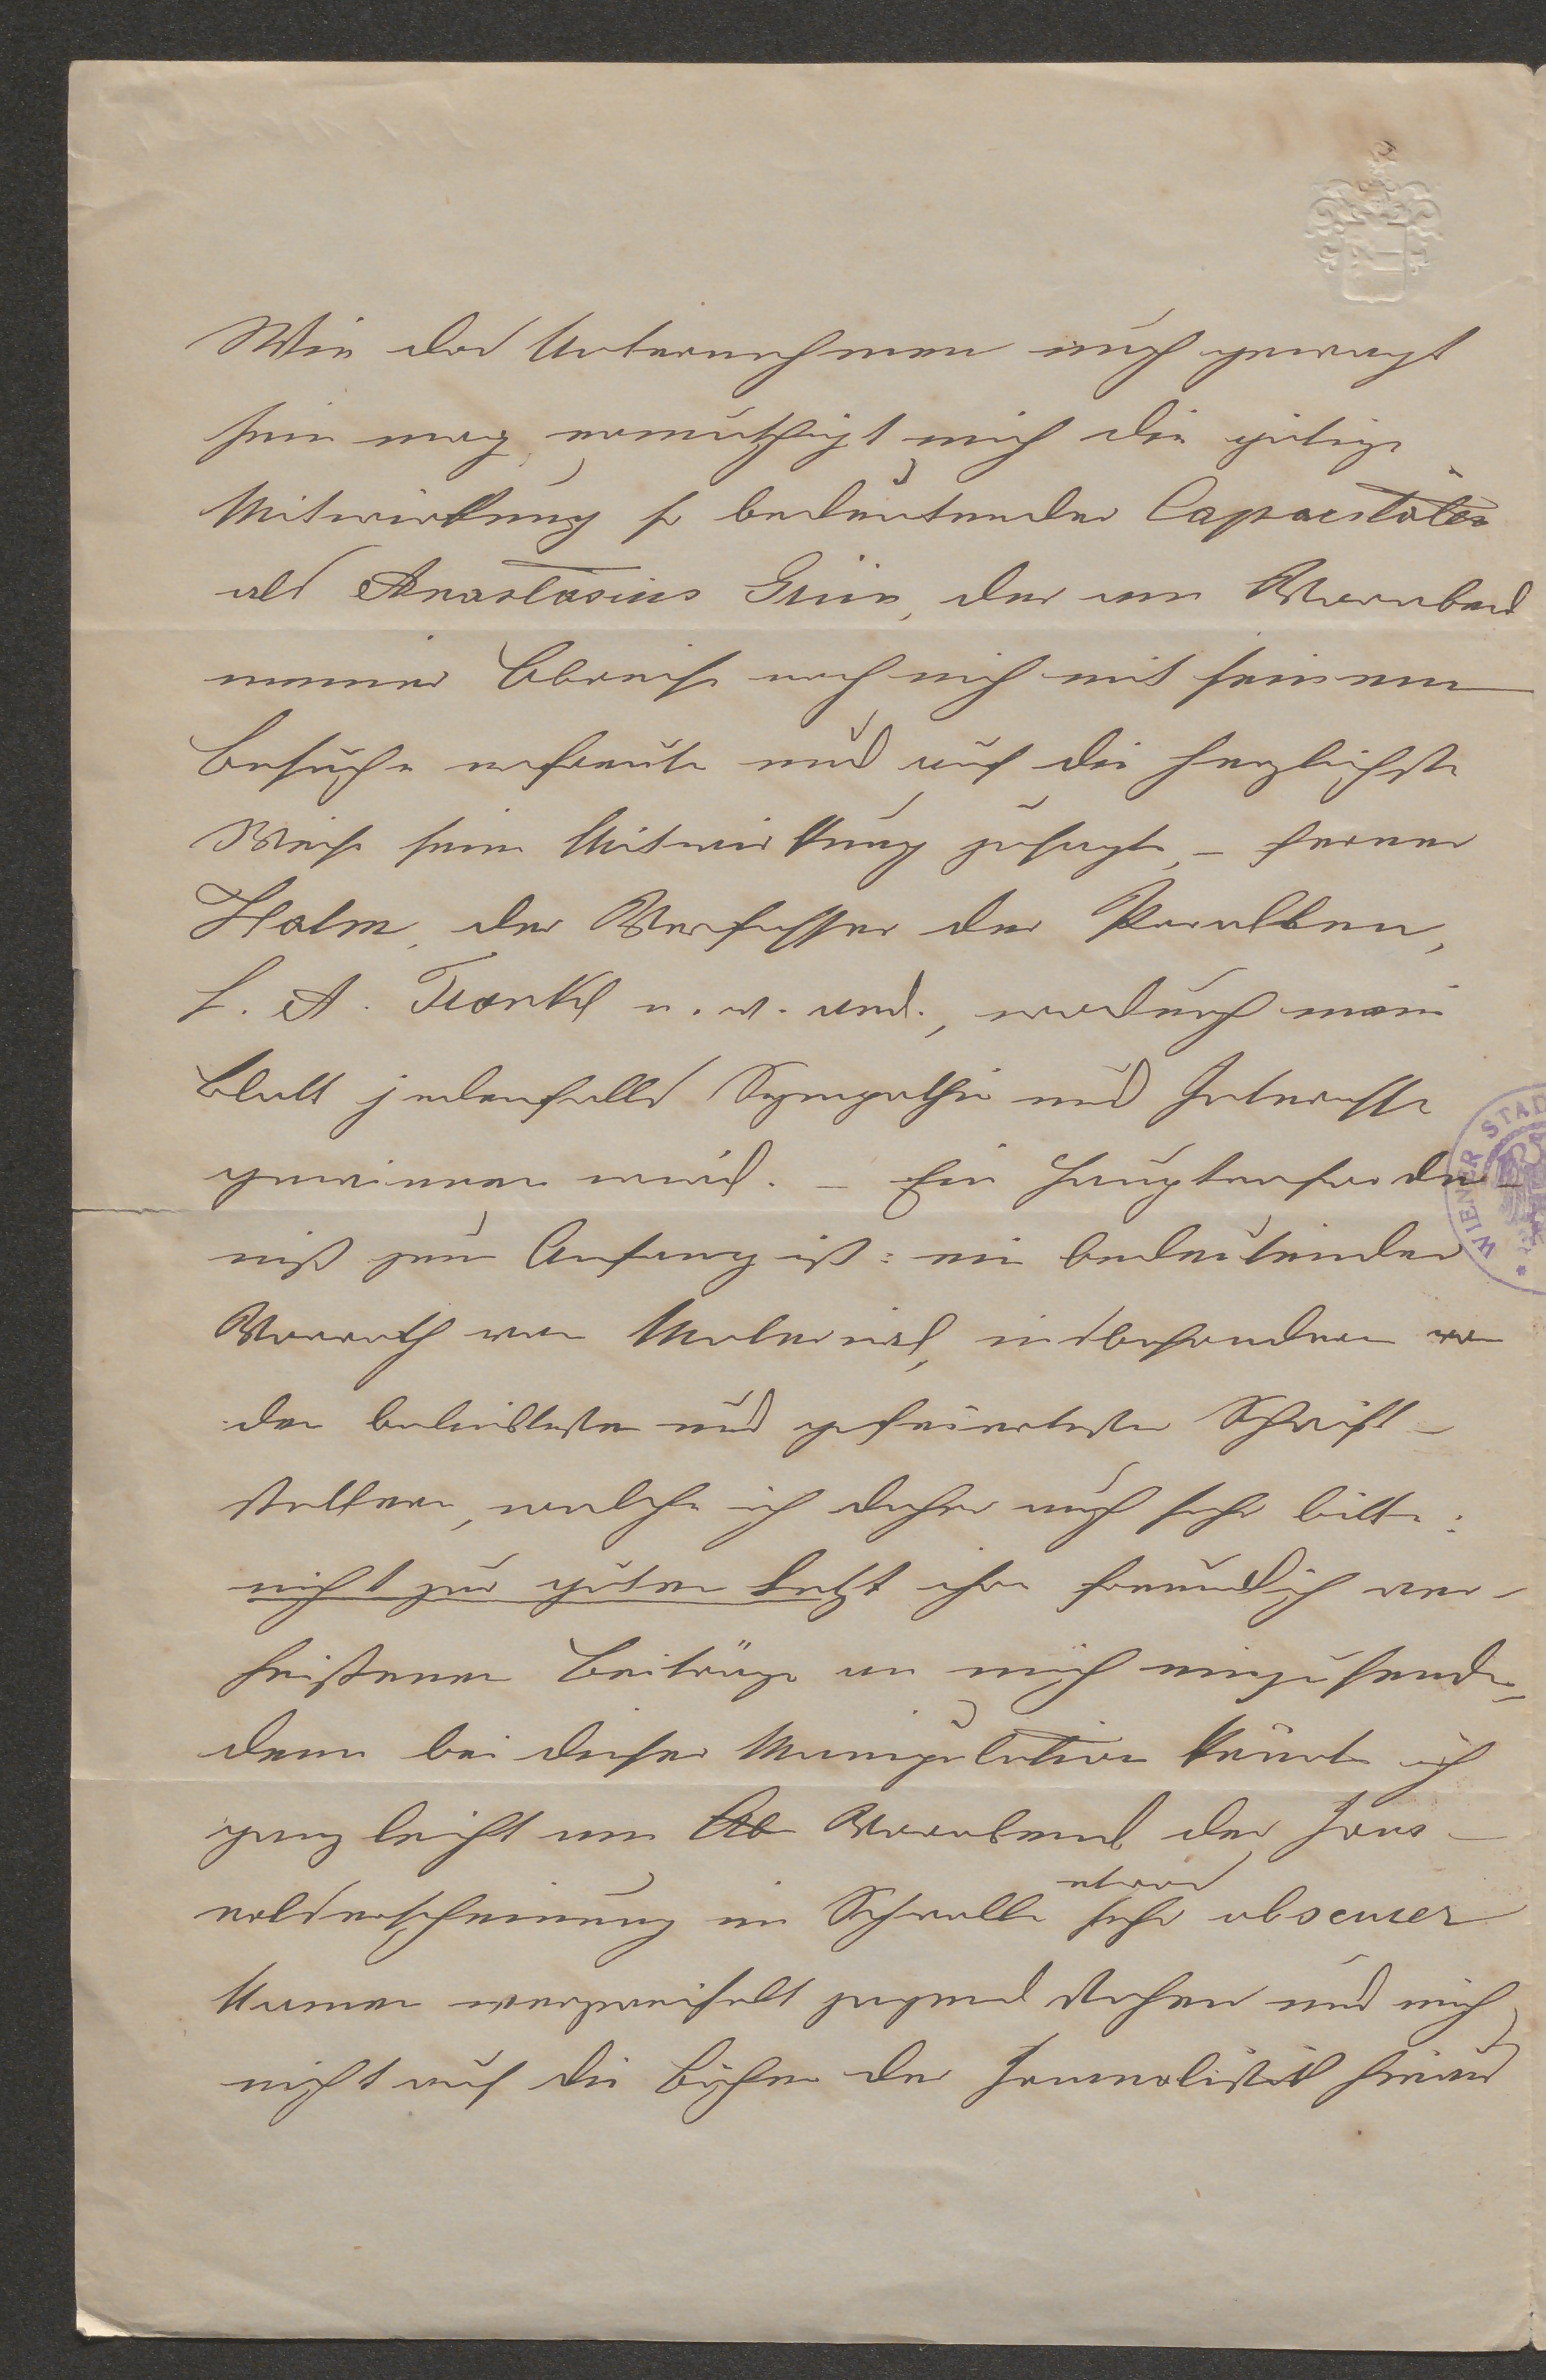 Wie das Unternehmen auch gewagt
sein mag, ermuthigt mich die gütige
Mitwirkung so bedeutender Capacitäten
als Anastasius Grün, der am Vorabend
meiner Abreise noch mich mit seinem
Besuche erfreute und auf die herzlichste
Weise seine Mitwirkung zusagte, – ferner
Halm, der Verfasser der Parabeln,
L. A. Frankl u. v. and., wodurch mein
Blatt jedenfalls Sympathie und Interesse
gewinnen wird. – Ein Haupterforder-
niß zum Anfang ist: ein bedeutender
Vorrath von Material, insbesondere von
den beliebtesten und gefeiertesten Schrift-
stellern, welche ich daher auch sehr bitte:
nicht zur guten Letzt ihre freundlich ver-
heißenen Beiträge an mich einzusenden,
denn bei dieser Manipulation könnte ich
ganz leicht am Ab Vorabend der Jour-
nalserscheinung im Schwalle etwas
sehr obscurer
Namen verzweifelt zagend stehen und mich
nicht auf die Bühne der Journalistik hinaus
WIENER STAD